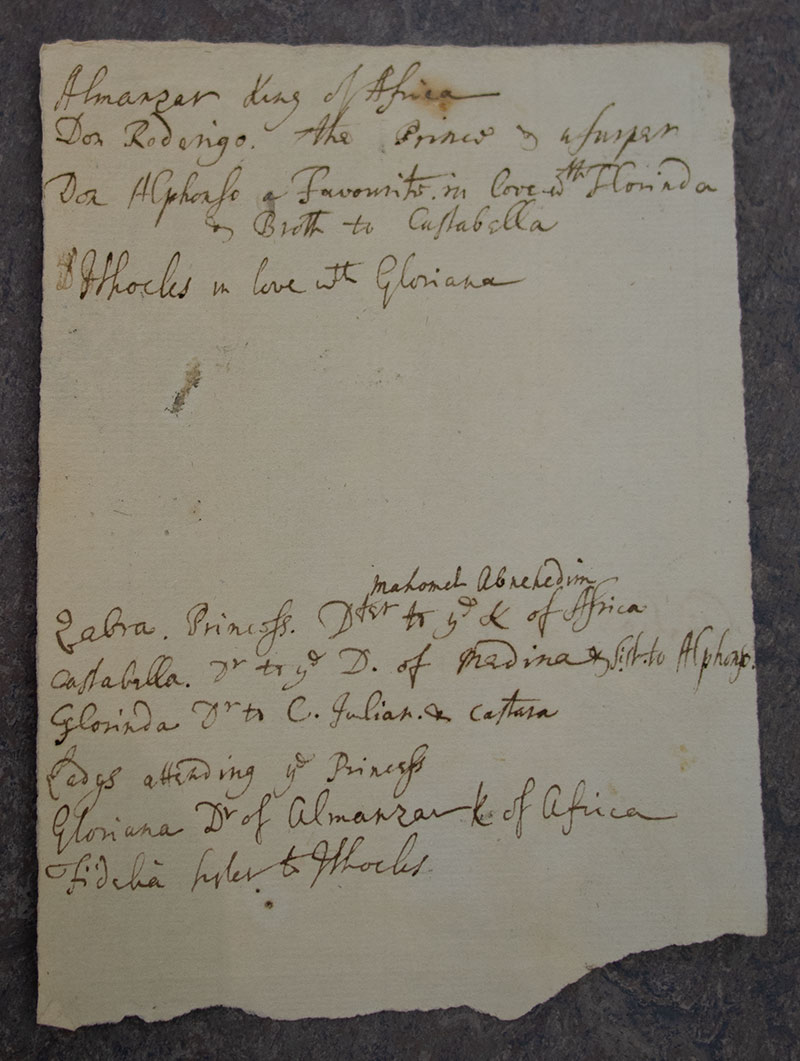 Almanzar King of Africa
Don Roderigo. the Prince & usurper
Don Alphonso a Favourite in love wth Florinda
& Broth to Castabella
Ithocles in love wth Gloriana
mahomet Abnehedim
Zabra. Princess. Dter to ye K of Africa
Castabella. Dr to ye D. of Medina & Sist. to Alphonso.
Glorinda Dr to C. Julian. & Castara
Ladys attending ye Princess
Gloriana Dr of Almanzar K of Africa
Fidelia sister to Ithocles